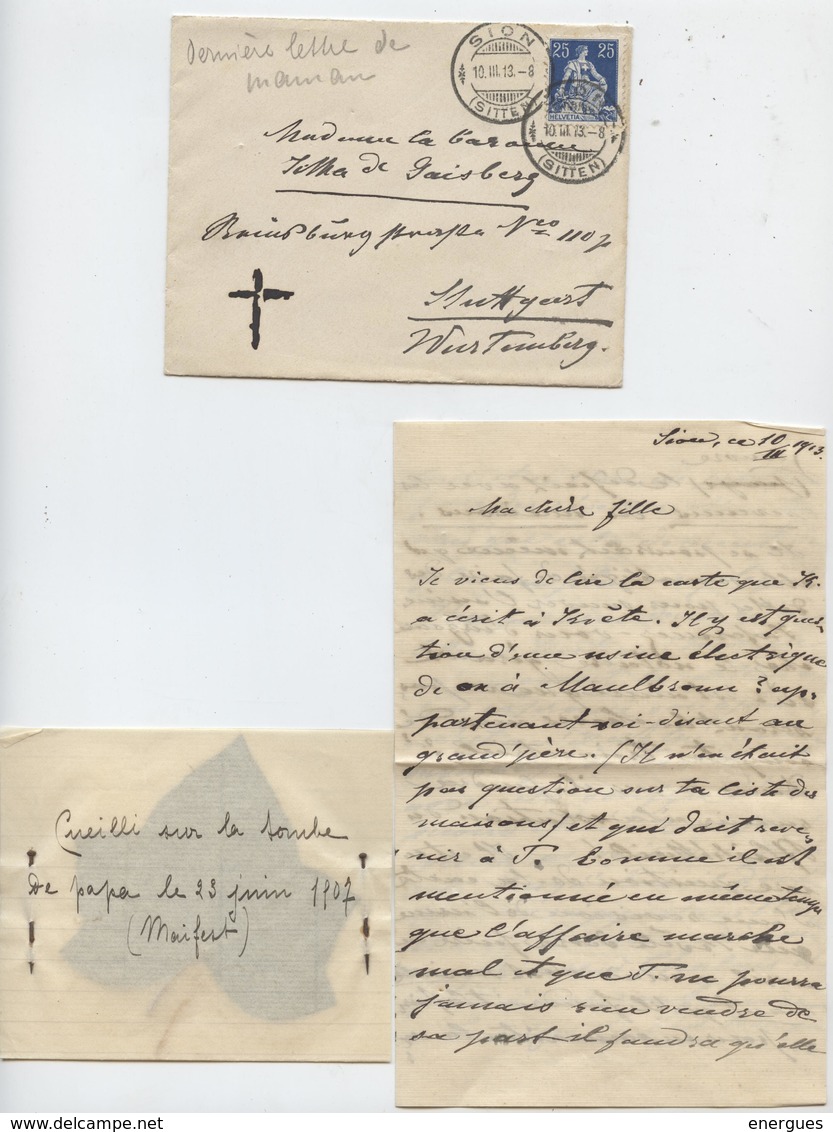 Dernière lettre de
maman
SION
10.III.13.-8
(SITTEN)
25 25
HELVETIA
10.III.13.-8
(SITTEN)
Madame la baronne
de Gaisberg
Reinsburgstrasse Nro 110
Stuttgart
Wurtemberg.
Sion, ce 10/III 1913.
Ma chère fille
Je viens de lire la carte que K.
a écrit à Kvête. Il y est ques-
tion d'une usine électrique
de ou à Maulbronn? ap-
partenant soi-disant au
grand'père. (Il n'en était
pas question sur ta liste des
maisons) et qui doit reve-
nir à T. Comme il est
mentionné en même temps
que l'affaire marche
mal et que T. ne pourra
jamais rien vendre de
sa part il faudra qu'elle
Cueilli sur la tombe
de papa le 23 juin 1907
(Maifest)
delcampe.net
energues